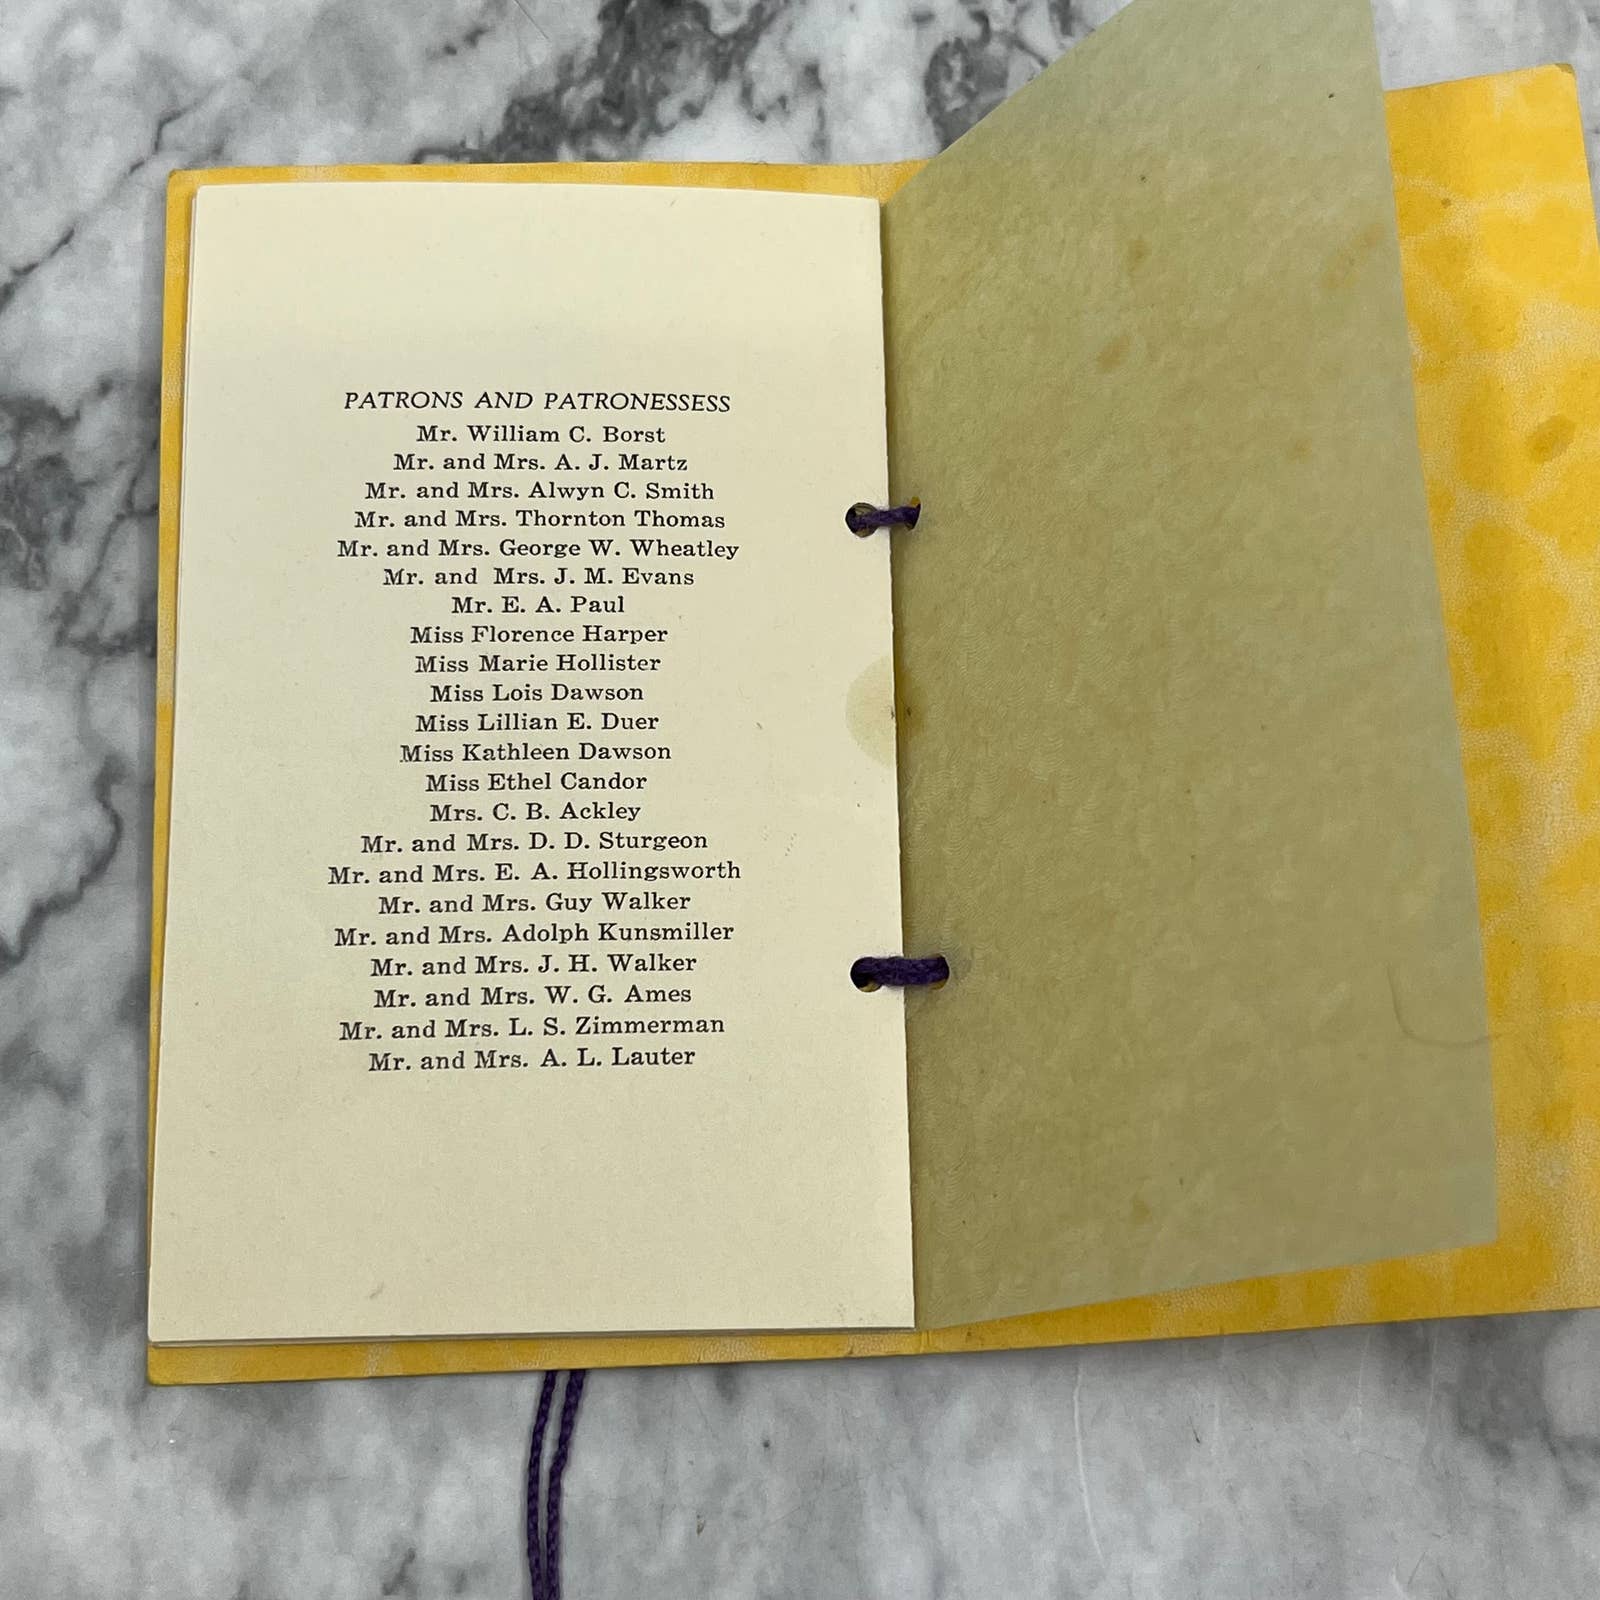 PATRONS AND PATRONESSESS
Mr. William C. Borst
Mr. and Mrs. A. J. Martz
Mr. and Mrs. Alwyn C. Smith
Mr. and Mrs. Thornton Thomas
Mr. and Mrs. George W. Wheatley
Mr. and Mrs. J. M. Evans
Mr. E. A. Paul
Miss Florence Harper
Miss Marie Hollister
Miss Lois Dawson
Miss Lillian E. Duer
Miss Kathleen Dawson
Miss Ethel Candor
Mrs. C. B. Ackley
Mr. and Mrs. D. D. Sturgeon
Mr. and Mrs. E. A. Hollingsworth
Mr. and Mrs. Guy Walker
Mr. and Mrs. Adolph Kunsmiller
Mr. and Mrs. J. H. Walker
Mr. and Mrs. W. G. Ames
Mr. and Mrs. L. S. Zimmerman
Mr. and Mrs. A. L. Lauter